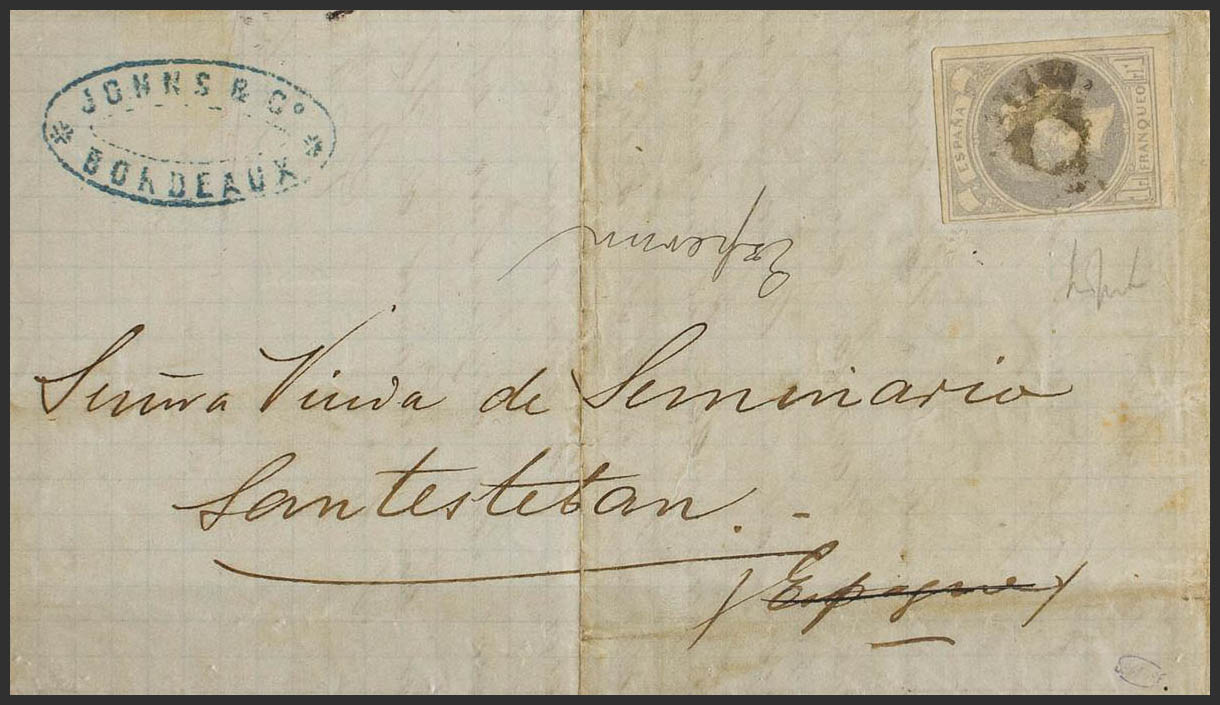 JOHNS & Co
BORDEAUX
ESPAÑA
FRANQUEO
1 r
1 r
Señora Viuda de Seminario
Santesteban.
(Espagne)